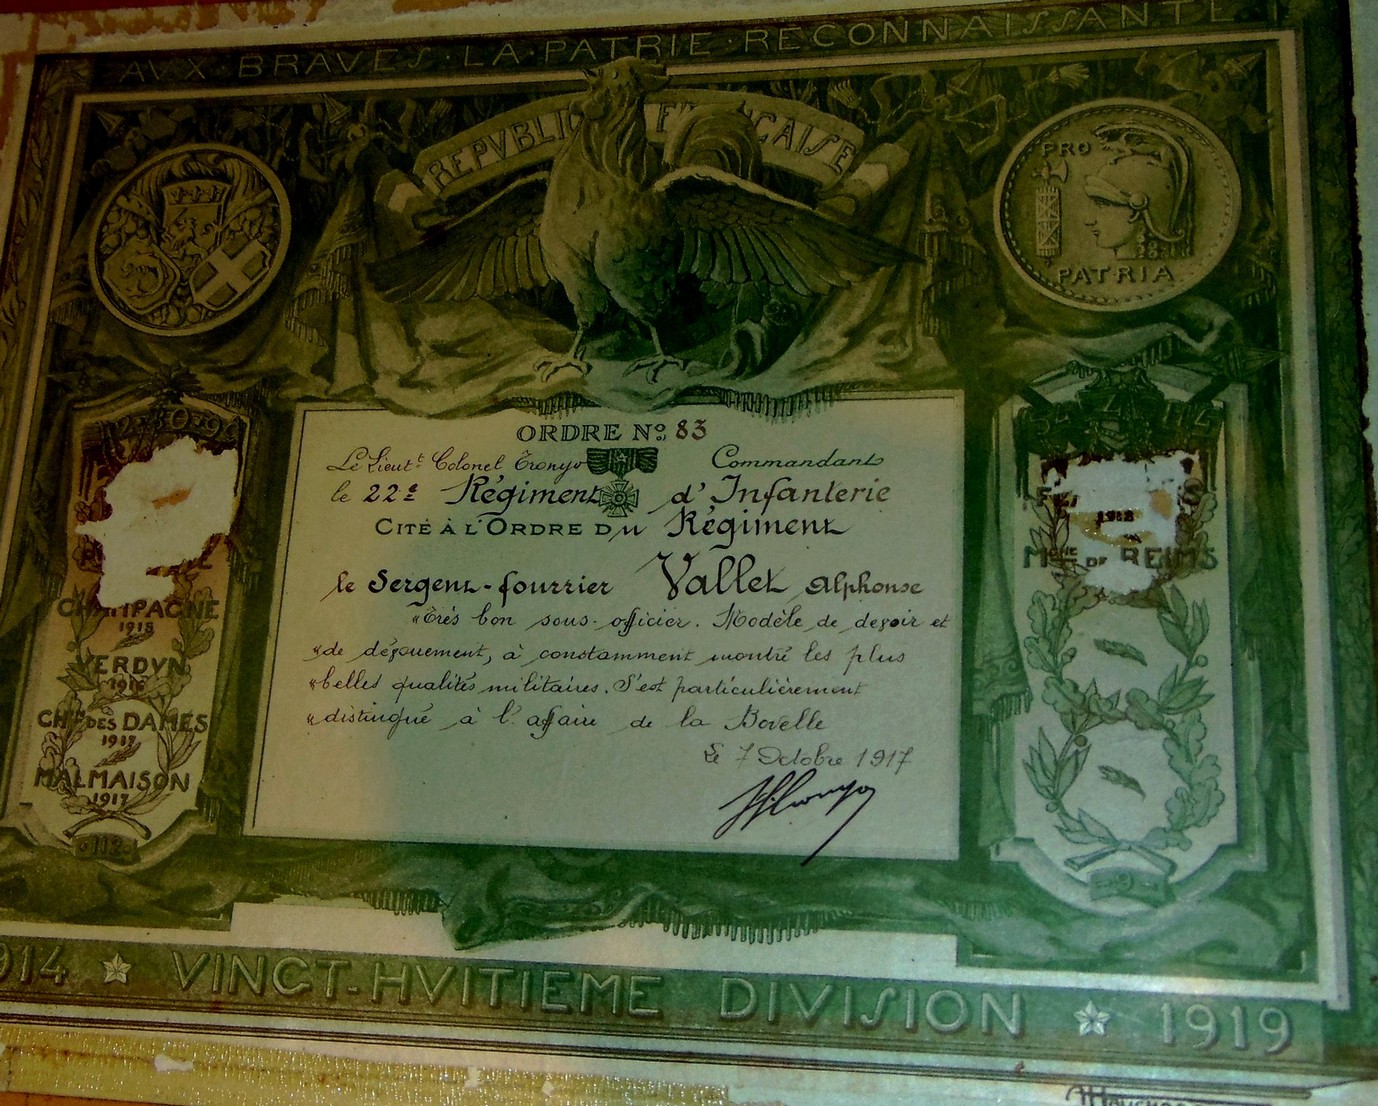 AVX·BRAVES·LA·PATRIE·RECONNAISSANTE
REPVBLIQ FRANCAISE
PRO
PATRIA
ORDRE No: 83
Le Lieutt Colonel Tronyo Commandant
le 22e Régiment d'Infanterie
CITÉ À L'ORDRE DU Régiment
le Sergent-fourrier Vallet Alphonse
"Très bon sous-officier. Modèle de devoir et
"de dévouement, à constamment montré les plus
"belles qualités militaires. S'est particulièrement
"distingué à l'affaire de la Bovelle
Le 7 Octobre 1917
CHAMPAGNE
1915
VERDVN
1916
CHIN DES DAMES
1917
MALMAISON
1917
112
1918
MGNE DE REIMS
9
1914 VINGT-HVITIEME DIVISION 1919